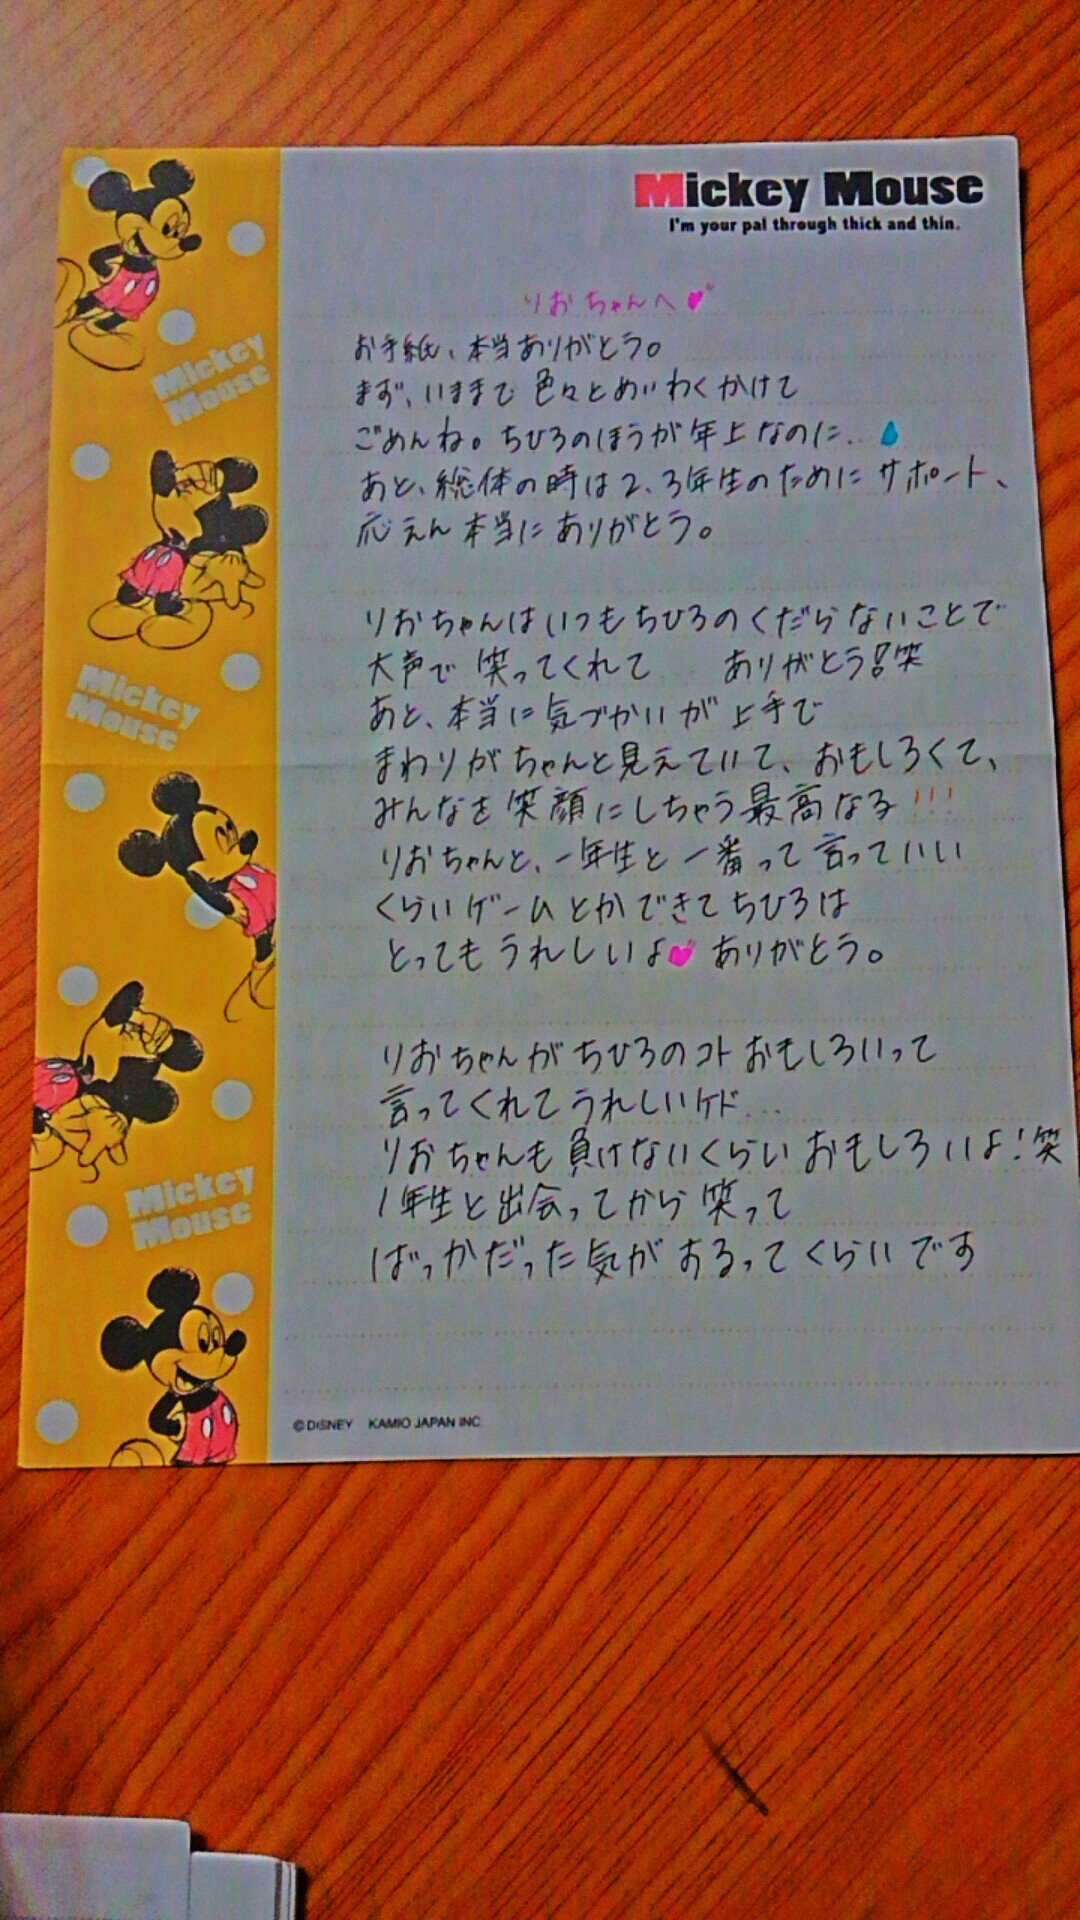 Mickey Mouse
I'm your pal through thick and thin.
りおちゃんへ
お手紙、本当ありがとう。
まず、いままで色々とめいわくかけて
ごめんね。ちひろのほうが年上なのに...
あと、総体の時は2、3年生のためにサポート、
応えん本当にありがとう。
りおちゃんはいつもちひろのくだらないことで
大声で笑ってくれて ありがとう!笑
あと、本当に気づかいが上手で
まわりがちゃんと見えていて、おもしろくて、
みんなを笑顔にしちゃう最高な子!!!
りおちゃんと、一年生と一番って言っていい
くらいゲームとかできてちひろは
とってもうれしいよ ありがとう。
りおちゃんがちひろのコトおもしろいって
言ってくれてうれしいケド...
りおちゃんも負けないくらいおもしろいよ!笑
1年生と出会ってから笑って
ばっかだった気がするってくらいです
Mickey
Mouse
Mickey
Mouse
Mickey
Mouse
©DISNEY KAMIO JAPAN INC.